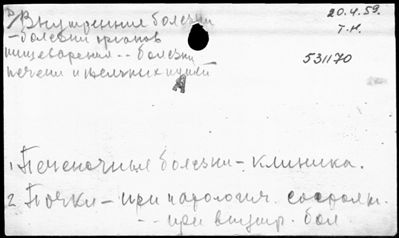 Р/В Внутренние болезни
20.4.59.
– болезни органов
Т.Н.
пищеварения -- болезни
531170
печени и желчных путей
А
1. Печеночные болезни – клиника.
2. Почки – при патологич. состоян.
-- при внутр. бол.